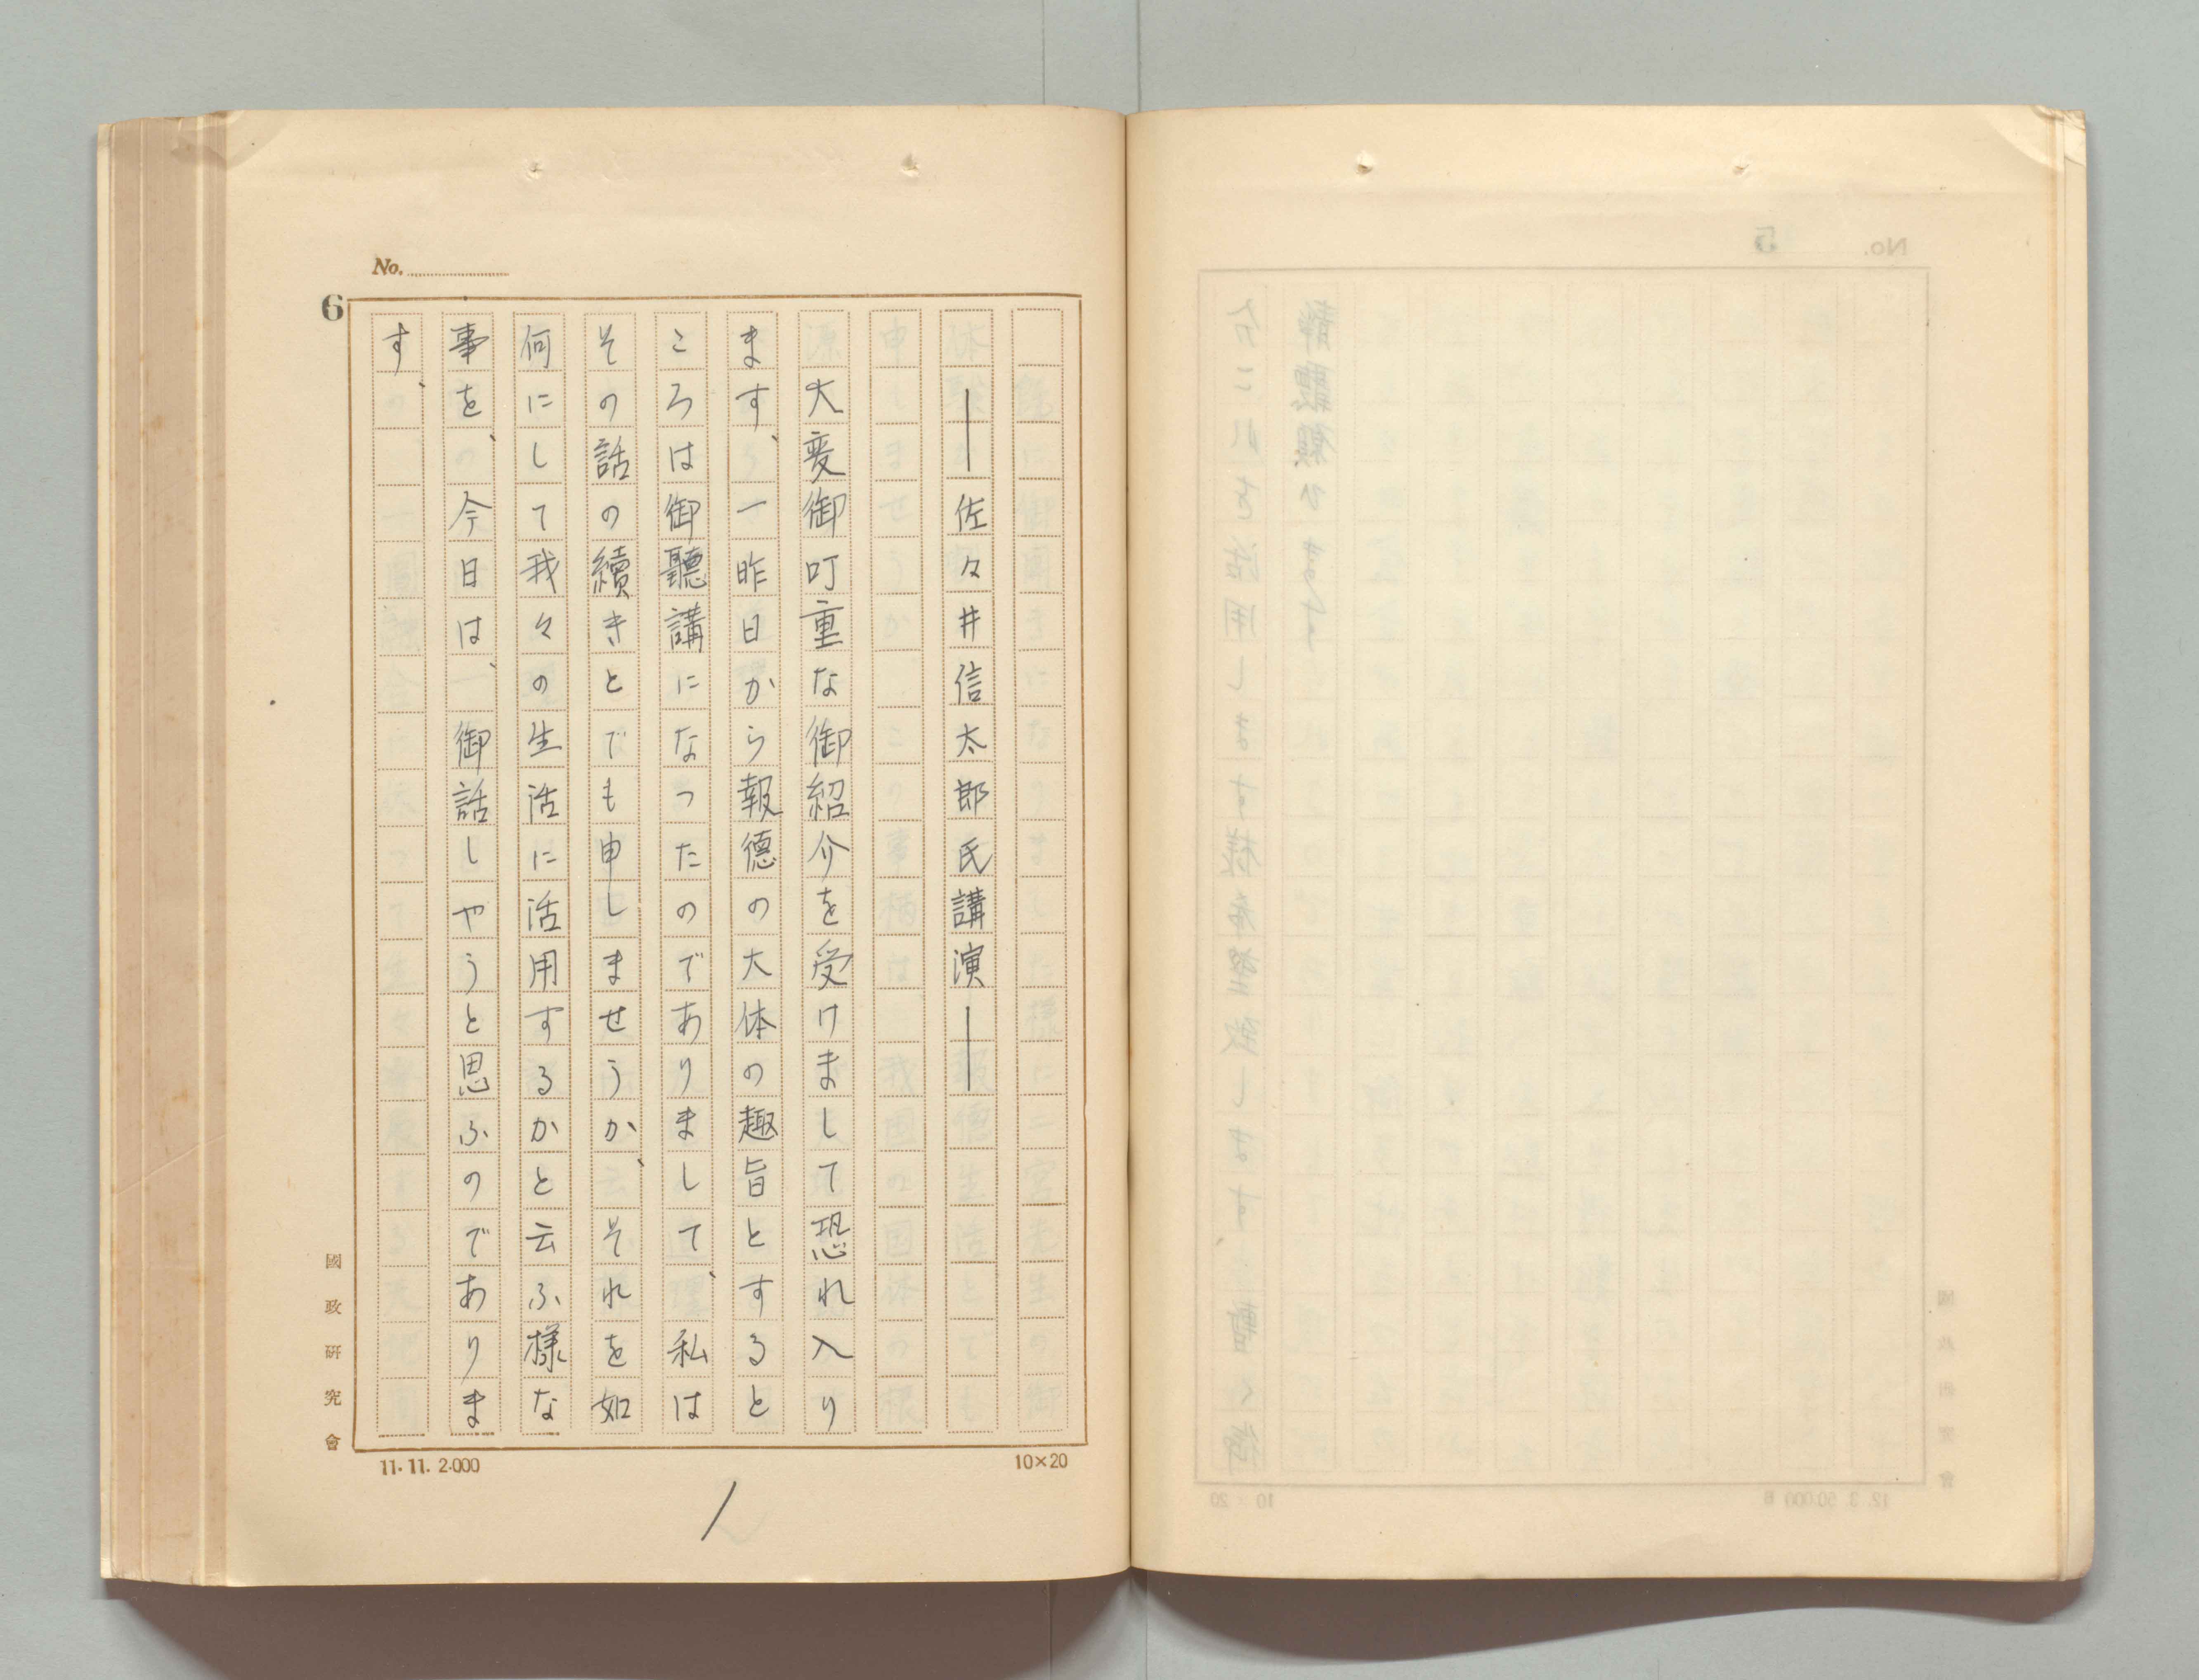 No.
6
―佐々井信太郎氏講演―
大変御叮重な御紹介を受けまして恐れ入り
ます、一昨日から報德の大体の趣旨とすると
ころは御聽講になつたのでありまして、私は
その話の續きとでも申しませうか、それを如
何にして我々の生活に活用するかと云ふ様な
事を、今日は、御話しやうと思ふのでありま
す、
國政研究會
11.11.2.000
10×20
1